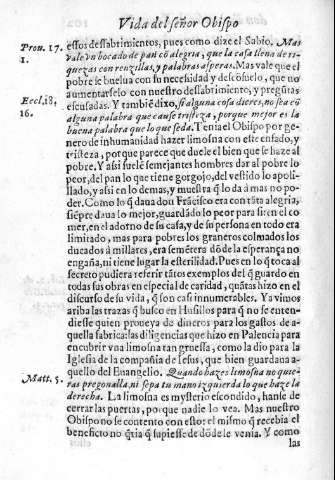 Vida del señor Obispo
Prou. 17.
1.
essos dessabrimientos, pues como dize el Sabio. Mas
vale vn bocado de pan cō alegria, que la casa llena de ri-
quezas con renzillas, y palabras asperas. Mas vale que el
pobre se buelua con su necesidad y descōsuelo, que no
aumentarselo con nuestro dessabrimiento, y pregūtas
Eccl. 18,
16.
escusadas. Y tambiē dixo, si algunu cosa dieres, no sea cō
alguna palabra que cause tristeza, porque mejor es la
buena palabra que lo que se da. Tenia el Obispo por ge-
nero de inhumanidad hazer limosna con este enfado, y
tristeza, porque parece que duele el bien que se haze al
pobre. Y assi suelē semejantes hombres dar al pobre lo
peor, del pan lo que tiene gorgojo, del vestido lo apoli-
llado, y assi en lo demas, y muestra q̄ lo dā a mas no po-
der. Como lo q̄ daua don Frācisco era con tāta alegria,
siēpre daua lo mejor, guardādo lo peor para si: en el co-
mer, en el adorno de su casa, y de su persona en todo era
limitado, mas para pobres los graneros colmados los
ducados à millares, era semētera dōde la esperança no
engaña, ni tiene lugar la esterilidad. Pues en lo q̄ toca al
secreto pudiera referir tātos exemplos del q̄ guardo en
todas sus obras en especial de caridad, quātas hizo en el
discurso de su vida, q̄ son casi innumerables. Ya vimos
arriba las trazas q̄ busco en Husillos para q̄ no se enten-
diesse quien proueya de dineros para los gastos de a-
quella fabrica: las diligencias que hizo en Palencia para
encubrir vna limosna tan gruessa, como la dio para la
Iglesia de la compañia de Iesus, que bien guardaua a-
Matt. 5.
quello del Euangelio. Quando hazes limosna no quie-
ras pregonalla, ni sepa tu mano izquierda lo que haze la
derecha. La limosna es mysterio escondido, hanse de
cerrar las puertas, porque nadie lo vea. Mas nuestro
Obispo no se contento con esto: el mismo q̄ recebia el
beneficio no q̄ria q̄ supiesse de dōde le venia. Y como
las